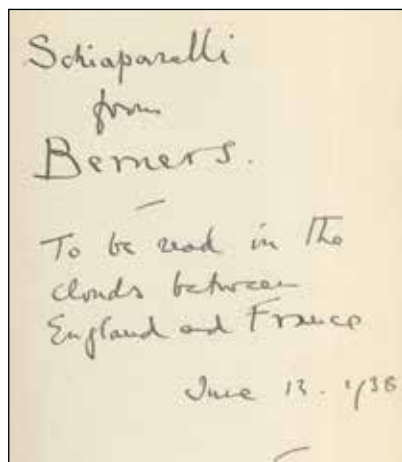 Schiaparelli
from
Berners.
To be read in the
clouds between
England and France
June 13. 1938